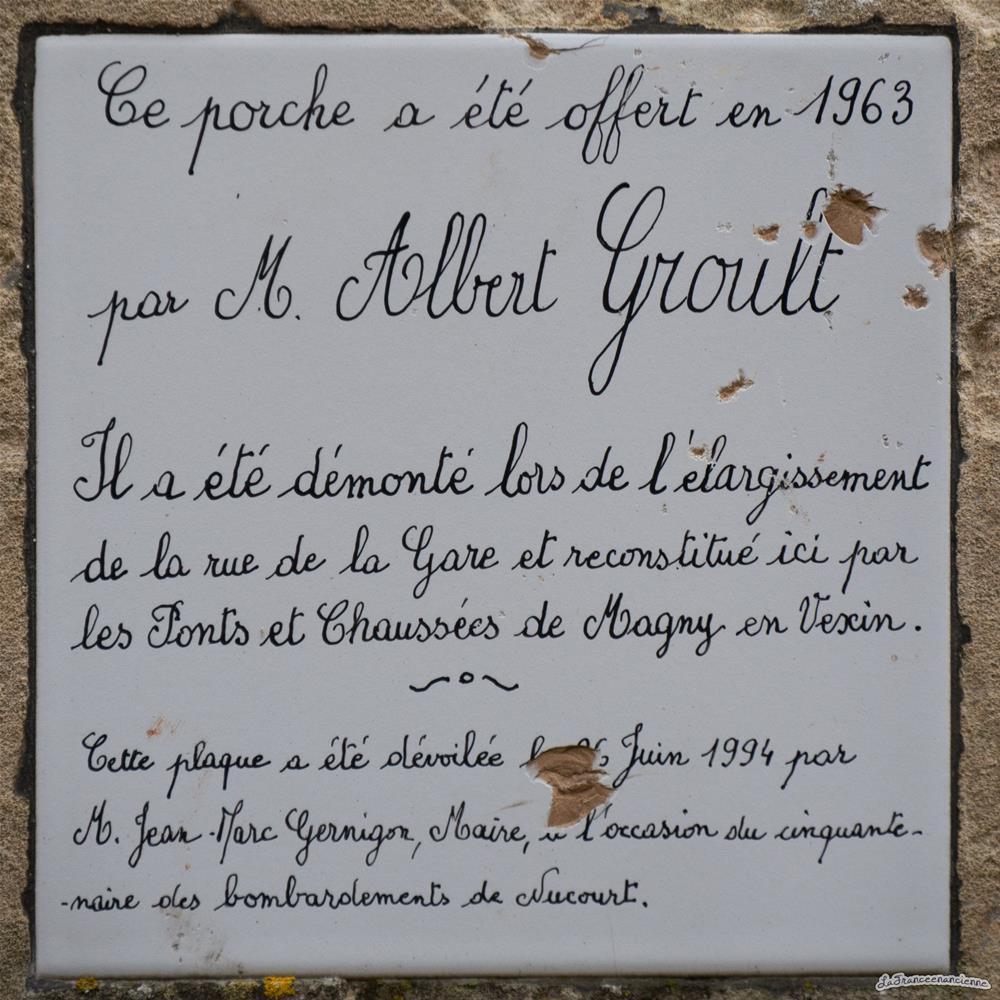 Ce porche a été offert en 1963
par M. Albert Groult
Il a été démonté lors de l'élargissement
de la rue de la Gare et reconstitué ici par
les Ponts et Chaussées de Magny en Vexin.
Cette plaque a été dévoilée Juin 1994 par
M. Jean-Marc Gernigon, Maire, à l'occasion du cinquante-
-naire des bombardements de Nucourt.
LaFranceenancienne